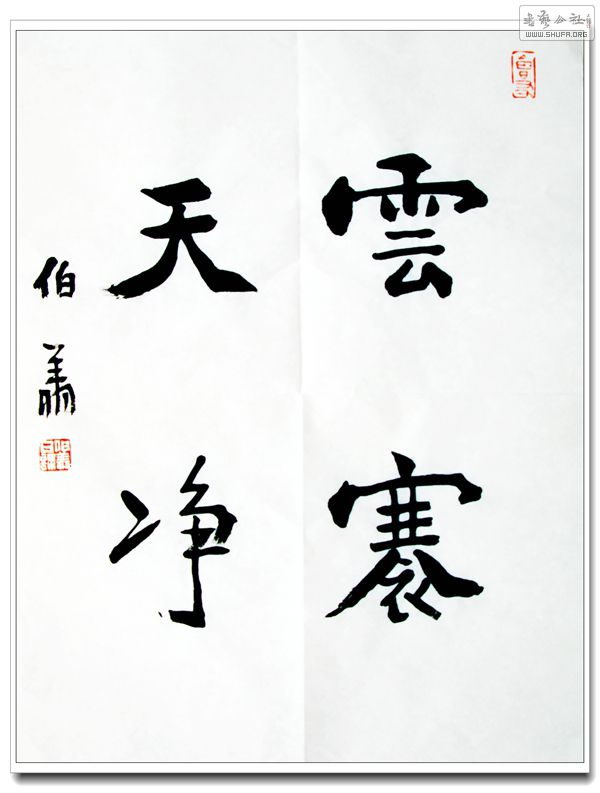 書藝公社
WWW.SHUFA.ORG
雲褰
天净
伯